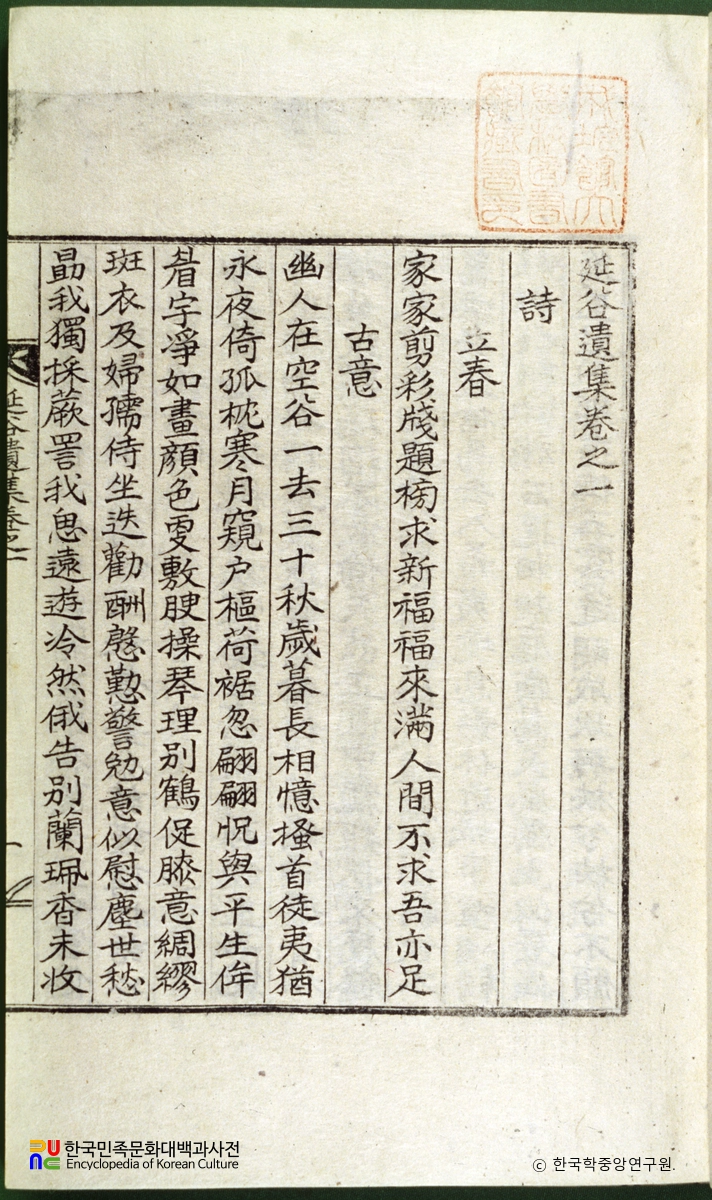 延谷遺集卷之一
詩
立春
家家剪彩牋題榜求新福福來滿人間不求吾亦足
古意
幽人在空谷一去三十秋歲暮長相憶搔首徒夷猶
永夜倚孤枕寒月窺户樞荷裾忽翩翩怳與平生侔
眉字凈如畫顔色更敷腴操琴理别鶴促膝意綢繆
斑衣及婦孺侍坐迭勸酬慇懃警勉意似慰塵世愁
勗我獨採蕨詈我思遠遊冷然俄告别蘭珮香未收
延谷遺集卷之一
한국민족문화대백과사전
Encyclopedia of Korean Culture
ⓒ 한국학중앙연구원.